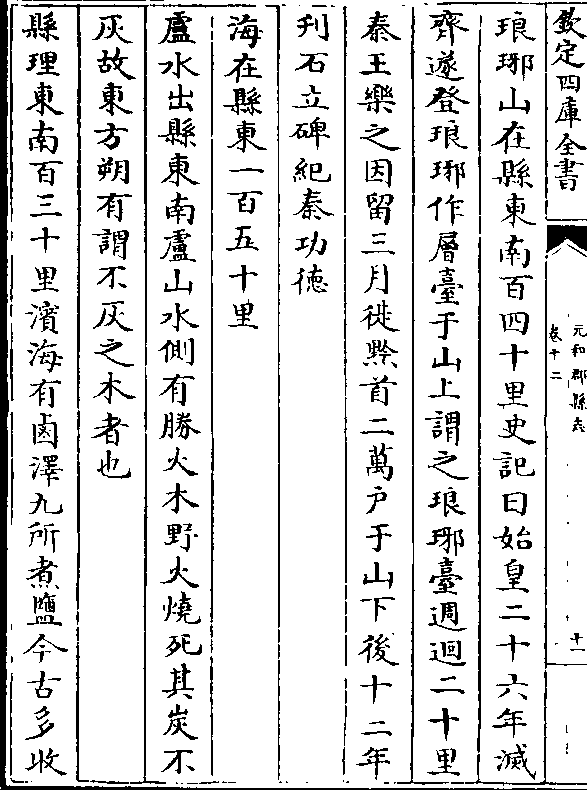 欽定四庫全書
元和郡縣志
卷十二
十一
琅琊山在縣東南百四十里史記曰始皇二十六年滅
齊遂登琅琊作層臺于山上謂之琅琊臺週迴二十里
秦王樂之因留三月徙黔首二萬户于山下後十二年
刋石立碑紀秦功德
海在縣東一百五十里
盧水出縣東南盧山水側有勝火木野火燒死其炭不
灰故東方朔有謂不灰之木者也
縣理東南百三十里濱海有鹵澤九所煮鹽今古多收